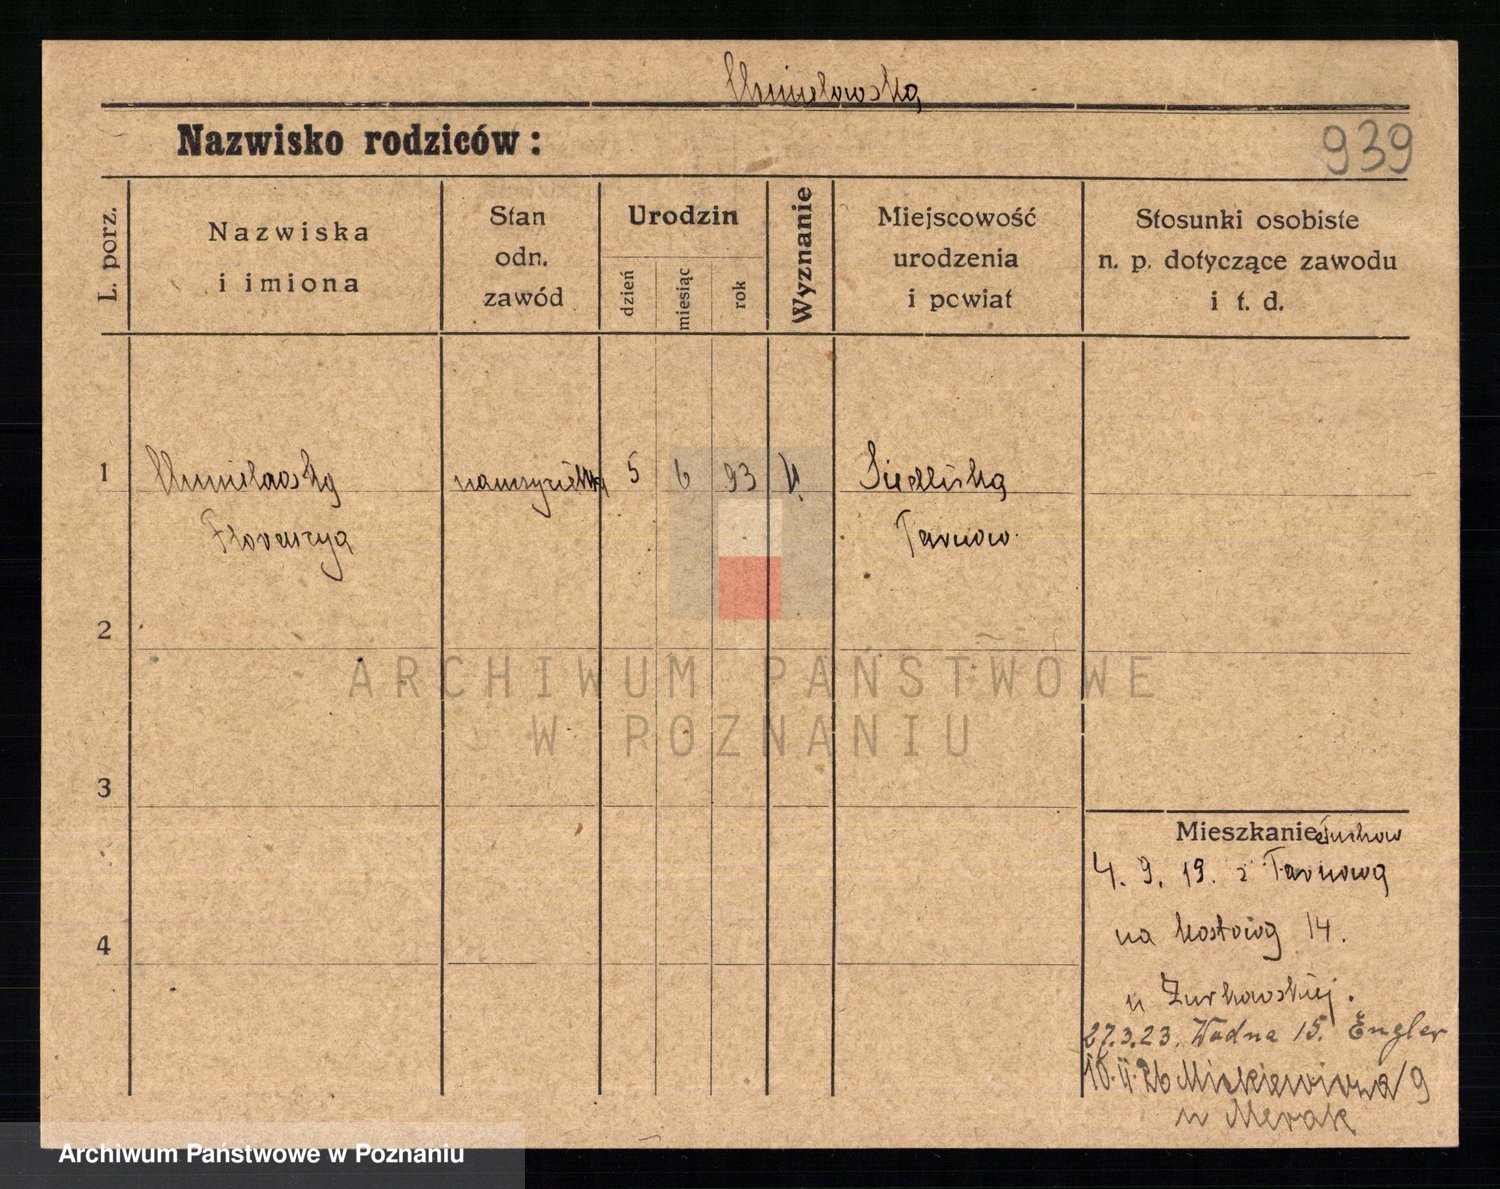 Chmielowska
Nazwisko rodziców:
939
L. porz.
Nazwiska
i imiona
Stan
odn.
zawód
Urodzin
dzień
miesiąc
rok
Wyznanie
Miejscowość
urodzenia
i pcwiat
Stosunki osobiste
n. p. dotyczące zawodu
i t. d.
1
Chmielowska
nauczycielka
5
6
93
k.
Siedliska
Florentyna
Tarnow.
2
ARCHIWUM PAŃSTWOWE
W POZNANIU
3
Mieszkanie
Tuchow
4. 9. 19. z Tarnowa
4
na
14.
u Żurkowskiej.
27.3.23. Wodna 15. Engler
10.II.26 Mickiewicza 9
u Merak
Archiwum Państwowe w Poznaniu